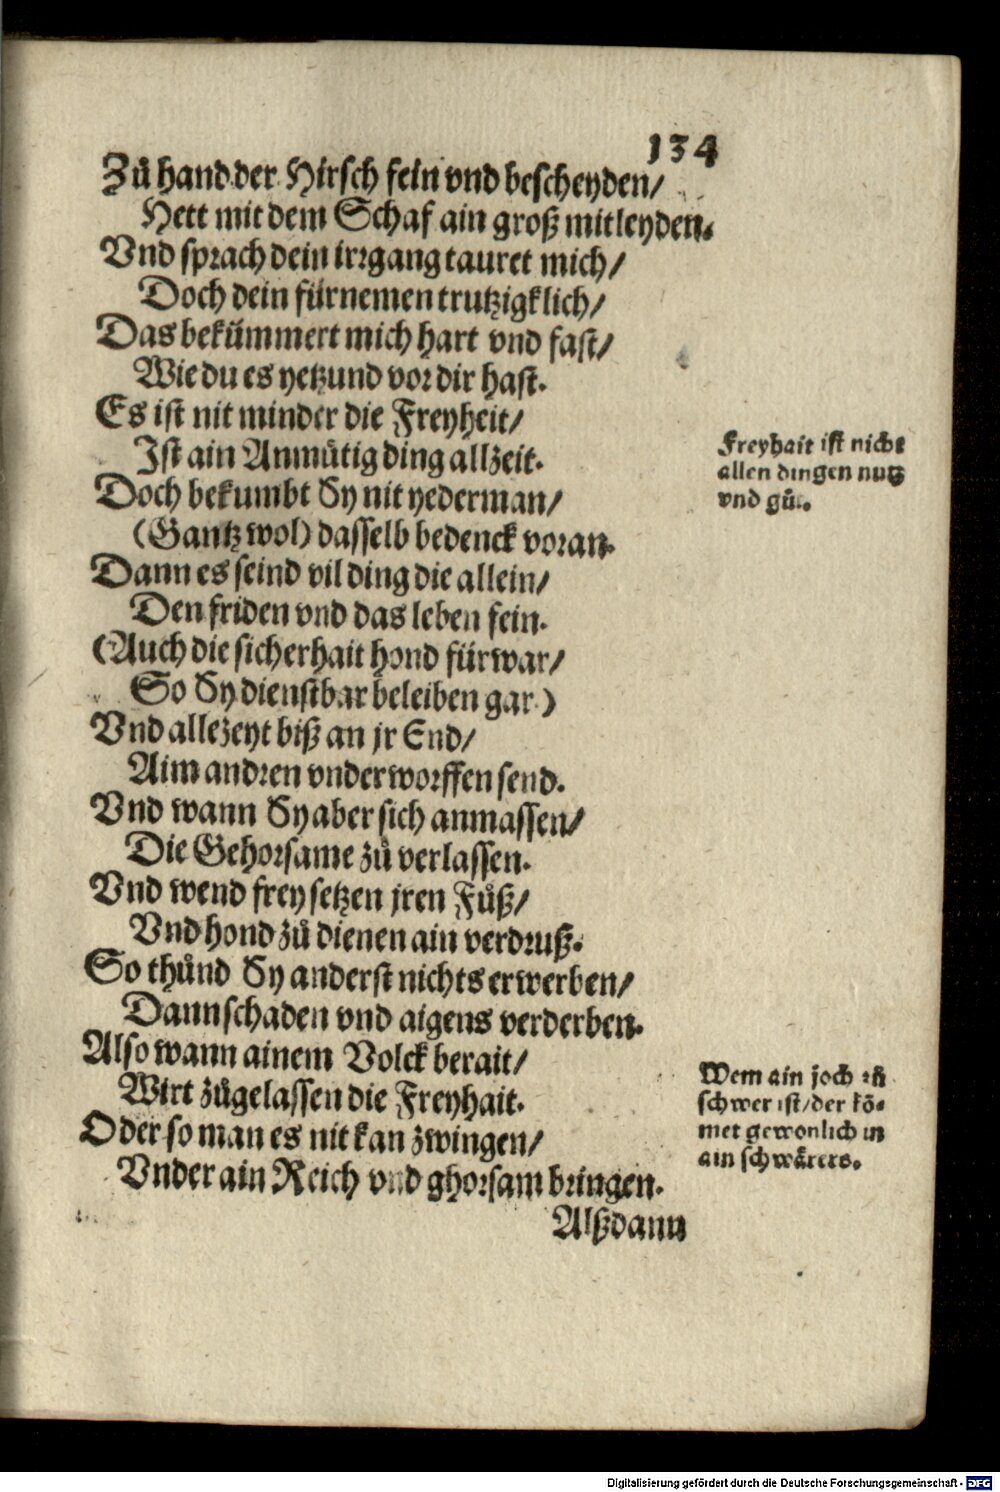 134
Zů hand der Hirsch fein vnd bescheyden/
Hett mit dem Schaf ain groß mitleyden.
Vnd sprach dein irrgang tauret mich/
Doch dein fürnemen trutzigklich/
Das bekümmert mich hart vnd fast/
Wie du es yetzund vor dir hast.
Es ist nit minder die Freyheit/
Ist ain Anmütig ding allzeit.
Doch bekumbt Sy nit yederman/
(Gantz wol) dasselb bedenck voran.
Dann es seind vil ding die allein/
Den friden vnd das leben fein.
(Auch die sicherhait hond fürwar/
So Sy dienstbar beleiben gar.)
Vnd allezeyt biß an jr End/
Aim andren vnderworffen send.
Vnd wann Sy aber sich anmassen/
Die Gehorsame zů verlassen.
Vnd wend frey setzen jren Fůß/
Vnd hond zů dienen ain verdruß.
So thůnd Sy anderst nichts erwerben/
Dann schaden vnd aigens verderben.
Also wann ainem Volck berait/
Wirt zůgelassen die Freyhait.
Oder so man es nit kan zwingen/
Vnder ain Reich vnd ghorsam bringen.
Alßdann
Freyhait ist nicht
allen dingen nutz
vnd gůt.
Wem ain joch zů
schwer ist/der kō-
met gewonlich in
ain schwärers.
Digitalisierung gefördert durch die Deutsche Forschungsgemeinschaft - DFG